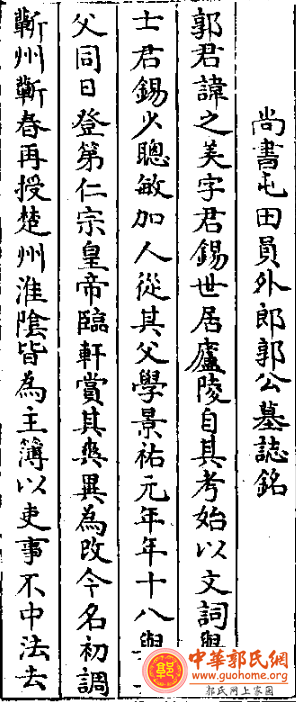 尚書屯田員外郎郭公墓誌銘
郭君諱之美字君錫世居廬陵自其考始以文詞舉進
士君錫少聰敏加人從其父學景祐元年年十八與
父同日登第仁宗皇帝臨軒賞其爽異為改今名初調
蘄州蘄春再授楚州淮陰皆為主簿以吏事不中法去
中華郭氏網
www.guohome.org
郭氏网上家园